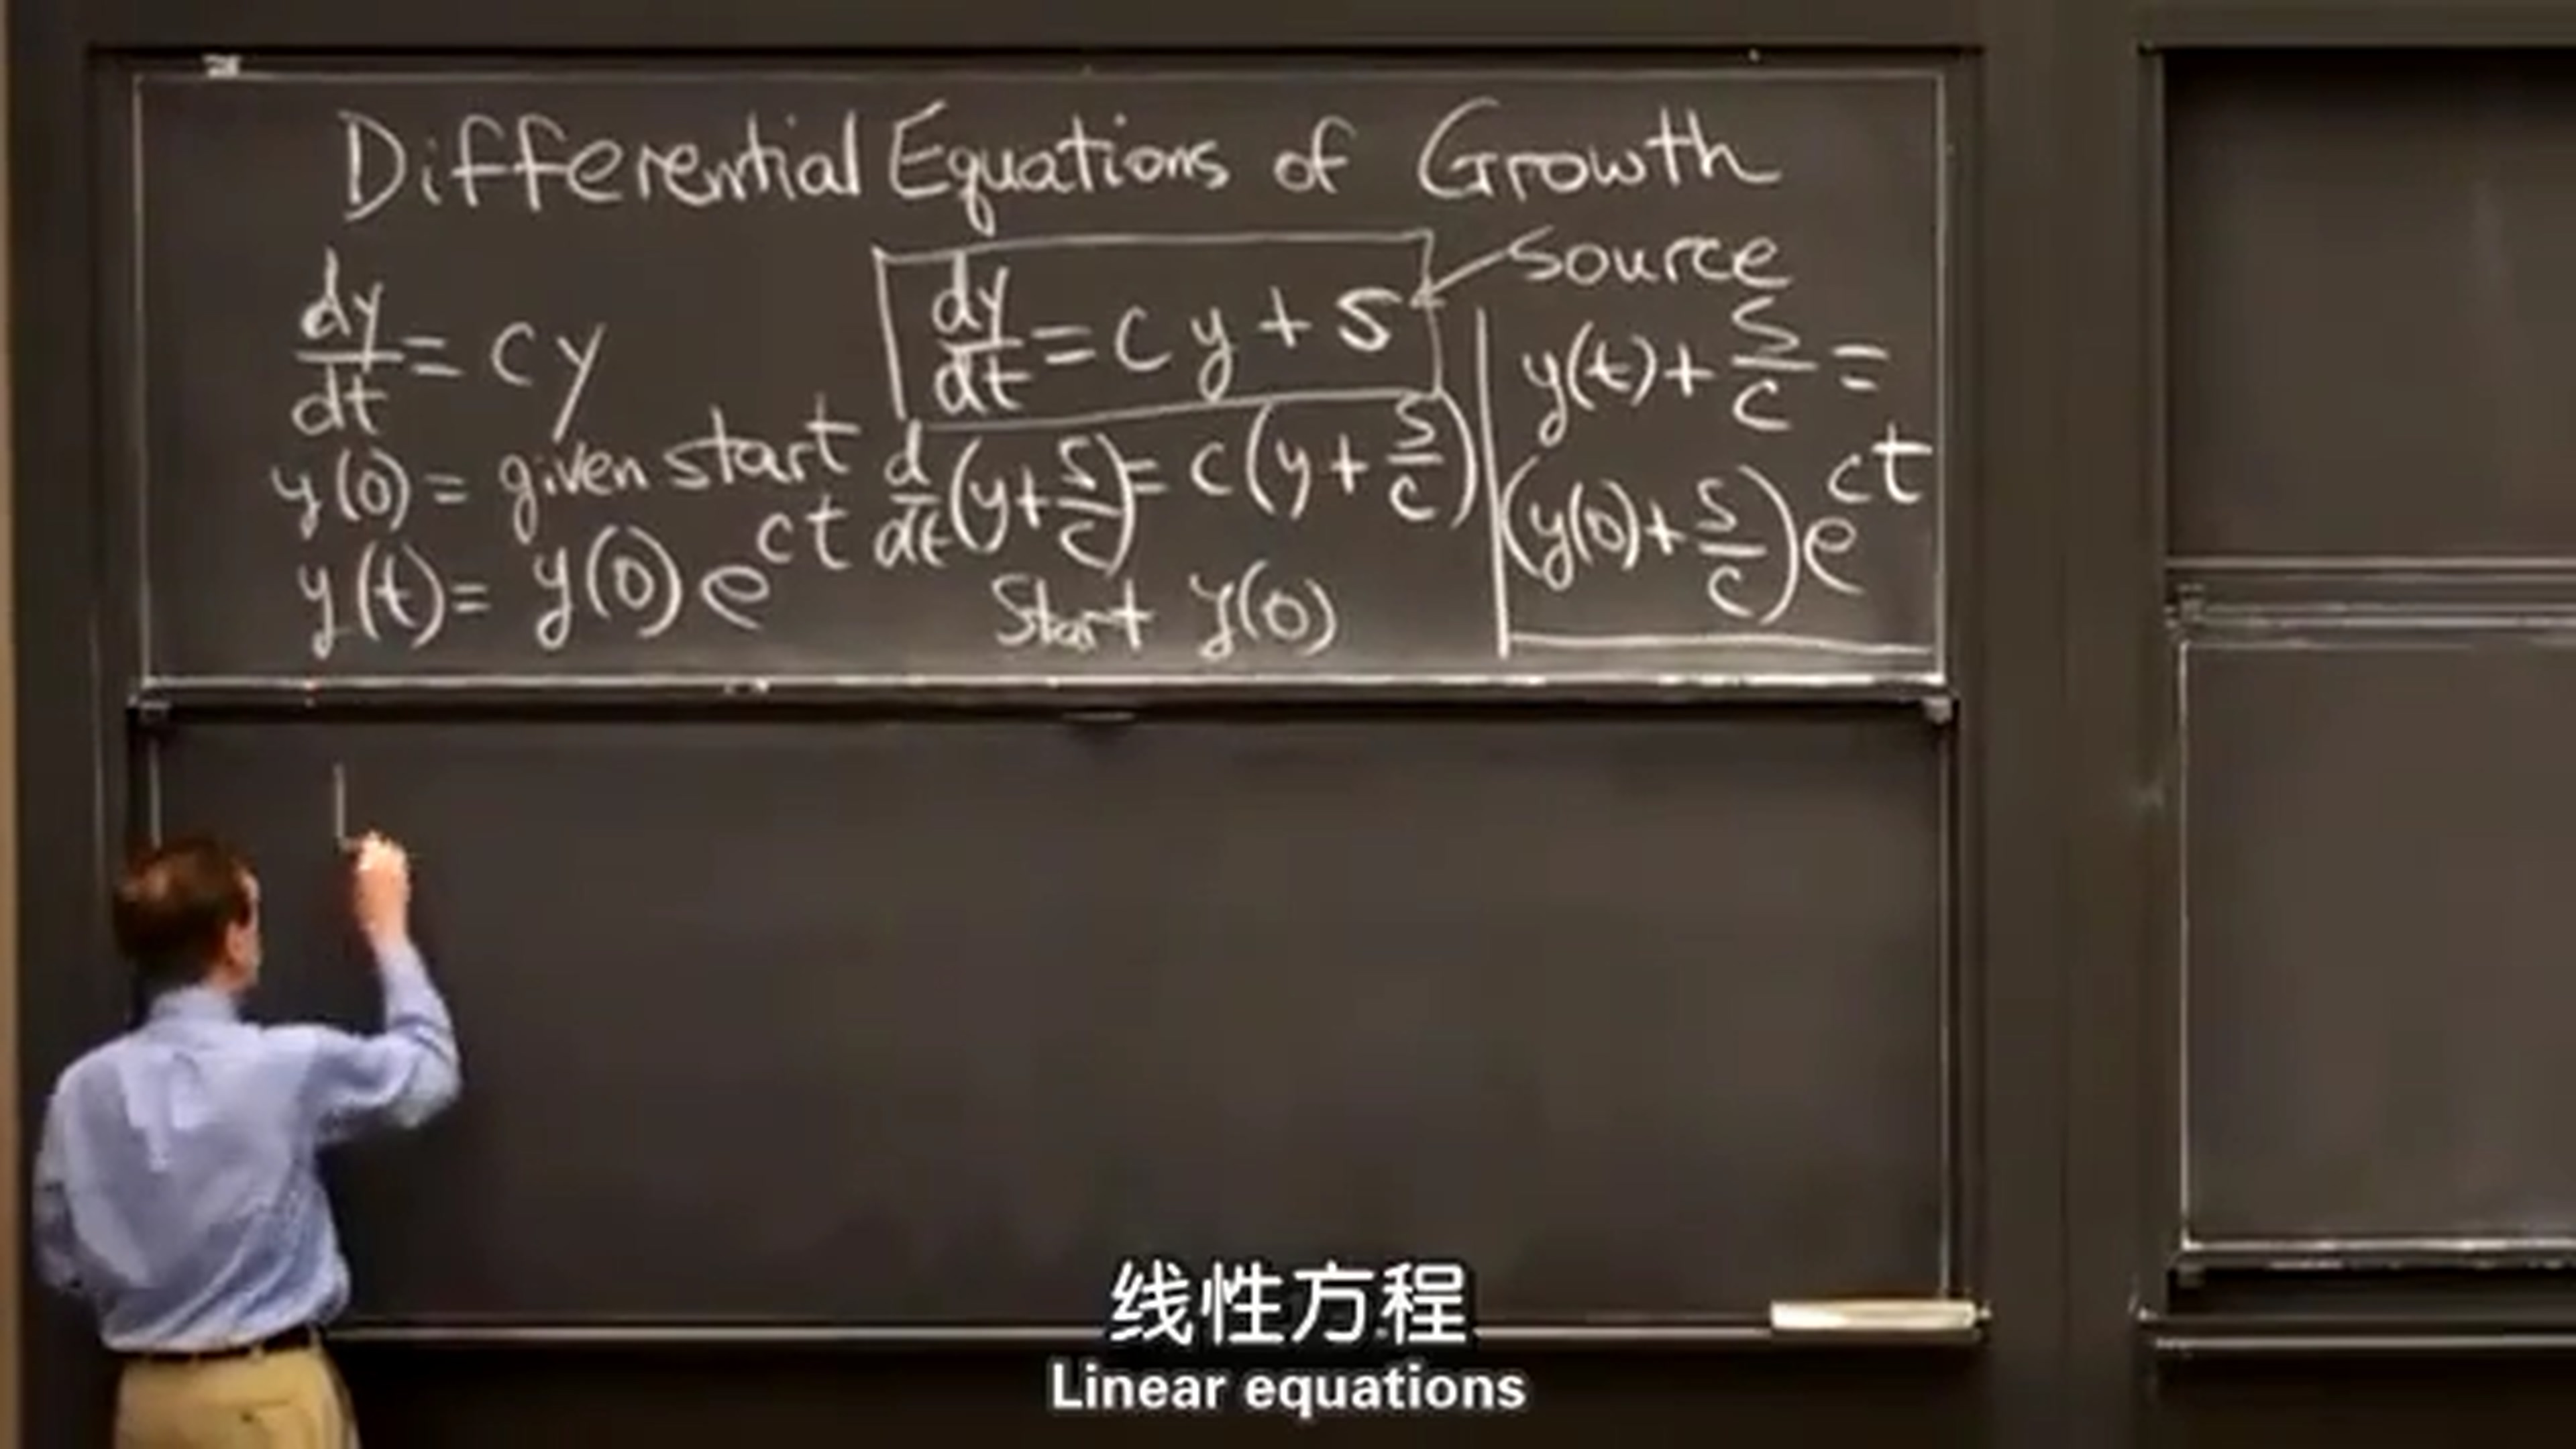 Differential Equations of Growth
dy/dt = cy
y(0) = given start
y(t) = y(0) e^ct
dy/dt = cy + s
source
d/dt (y + s/c) = c(y + s/c)
Start y(0)
y(t) + s/c =
(y(0) + s/c) e^ct
线性方程
Linear equations